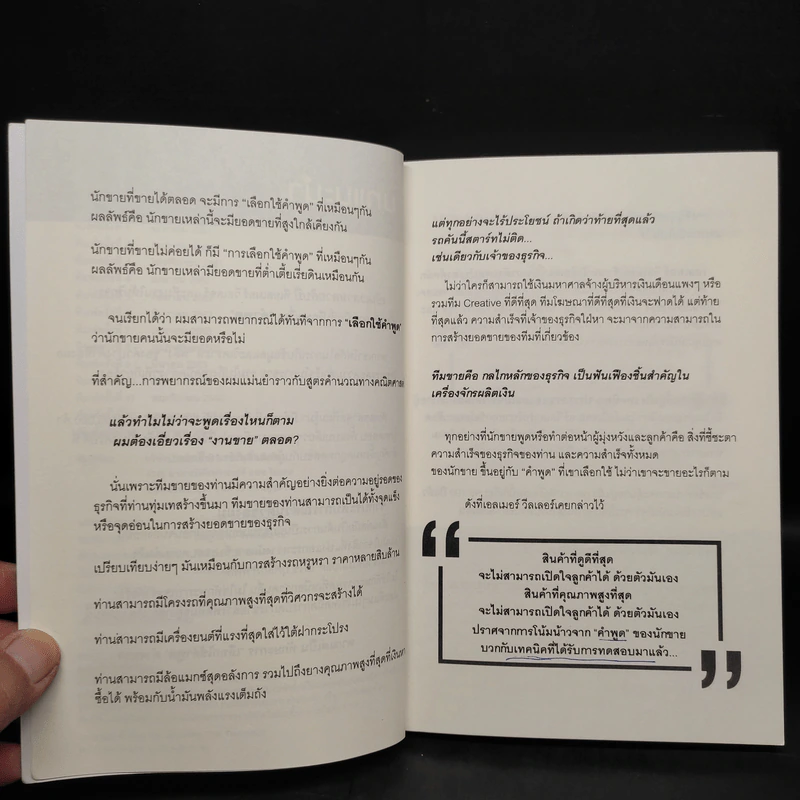 นักขายที่ขายได้ตลอด จะมีการ "เลือกใช้คำพูด" ที่เหมือนๆกัน
ผลลัพธ์คือ นักขายเหล่านี้จะมียอดขายที่สูงใกล้เคียงกัน
นักขายที่ขายไม่ค่อยได้ ก็มี "การเลือกใช้คำพูด" ที่เหมือนๆกัน
ผลลัพธ์คือ นักขายเหล่ามียอดขายที่ต่ำเตี้ยเรี่ยดินเหมือนกัน
จนเรียกได้ว่า ผมสามารถพยากรณ์ได้ทันทีจากการ "เลือกใช้คำพูด"
ว่านักขายคนนั้นจะมียอดหรือไม่
ที่สำคัญ...การพยากรณ์ของผมแม่นยำราวกับสูตรคำนวณทางคณิตศาสตร์
แล้วทำไมไม่ว่าจะพูดเรื่องไหนก็ตาม
ผมต้องเอี่ยวเรื่อง "งานขาย" ตลอด?
นั่นเพราะทีมขายของท่านมีความสำคัญอย่างยิ่งต่อความอยู่รอดของ
ธุรกิจที่ท่านทุ่มเทสร้างขึ้นมา ทีมขายของท่านสามารถเป็นได้ทั้งจุดแข็ง
หรือจุดอ่อนในการสร้างยอดขายของธุรกิจ
เปรียบเทียบง่ายๆ มันเหมือนกับการสร้างรถหรูหรา ราคาหลายสิบล้าน
ท่านสามารถมีโครงรถที่คุณภาพสูงที่สุดที่วิศวกรจะสร้างได้
ท่านสามารถมีเครื่องยนต์ที่แรงที่สุดใส่ไว้ใต้ฝากระโปรง
ท่านสามารถมีล้อแมกซ์สุดอลังการ รวมไปถึงยางคุณภาพสูงที่สุดที่เงิน
ซื้อได้ พร้อมกับน้ำมันพลังแรงเต็มถัง
แต่ทุกอย่างจะไร้ประโยชน์ ถ้าเกิดว่าท้ายที่สุดแล้ว
รถคันนี้สตาร์ทไม่ติด...
เช่นเดียวกับเจ้าของธุรกิจ...
ไม่ว่าใครก็สามารถใช้เงินมหาศาลจ้างผู้บริหารเงินเดือนแพงๆ หรือ
รวมทีม Creative ที่ดีที่สุด ทีมโฆษณาที่ดีที่สุดที่เงินจะฟาดได้ แต่ท้าย
ที่สุดแล้ว ความสำเร็จที่เจ้าของธุรกิจใฝ่หา จะมาจากความสามารถใน
การสร้างยอดขายของทีมที่เกี่ยวข้อง
ทีมขายคือ กลไกหลักของธุรกิจ เป็นฟันเฟืองชิ้นสำคัญใน
เครื่องจักรผลิตเงิน
ทุกอย่างที่นักขายพูดหรือทำต่อหน้าผู้มุ่งหวังและลูกค้าคือ สิ่งที่ชี้ชะตา
ความสำเร็จของธุรกิจของท่าน และความสำเร็จทั้งหมด
ของนักขาย ขึ้นอยู่กับ "คำพูด" ที่เขาเลือกใช้ ไม่ว่าเขาจะขายอะไรก็ตาม
ดังที่เอลเมอร์ วีลเลอร์เคยกล่าวไว้
สินค้าที่ดูดีที่สุด
จะไม่สามารถเปิดใจลูกค้าได้ ด้วยตัวมันเอง
สินค้าที่คุณภาพสูงที่สุด
จะไม่สามารถเปิดใจลูกค้าได้ ด้วยตัวมันเอง
ปราศจากการโน้มน้าวจาก "คำพูด" ของนักขาย
บวกกับเทคนิคที่ได้รับการทดสอบมาแล้ว...